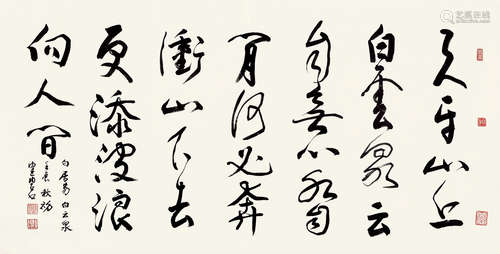 天平山上
白雲泉云
自無心水自
闲何必奔
衝山下去
更添波浪
向人间
白居易白云泉